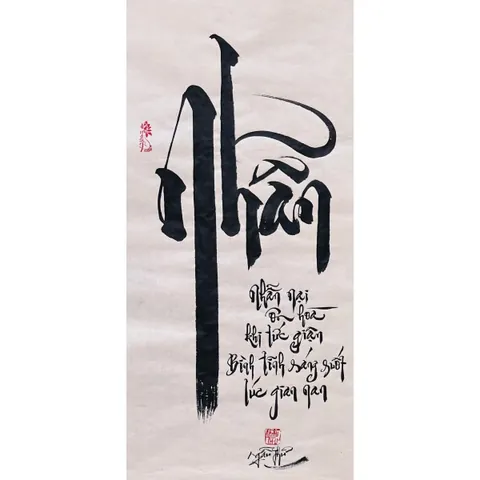 Nhẫn
Nhẫn nại
ôn hòa
khi tức giận
Bình tĩnh sáng suốt
lúc gian nan